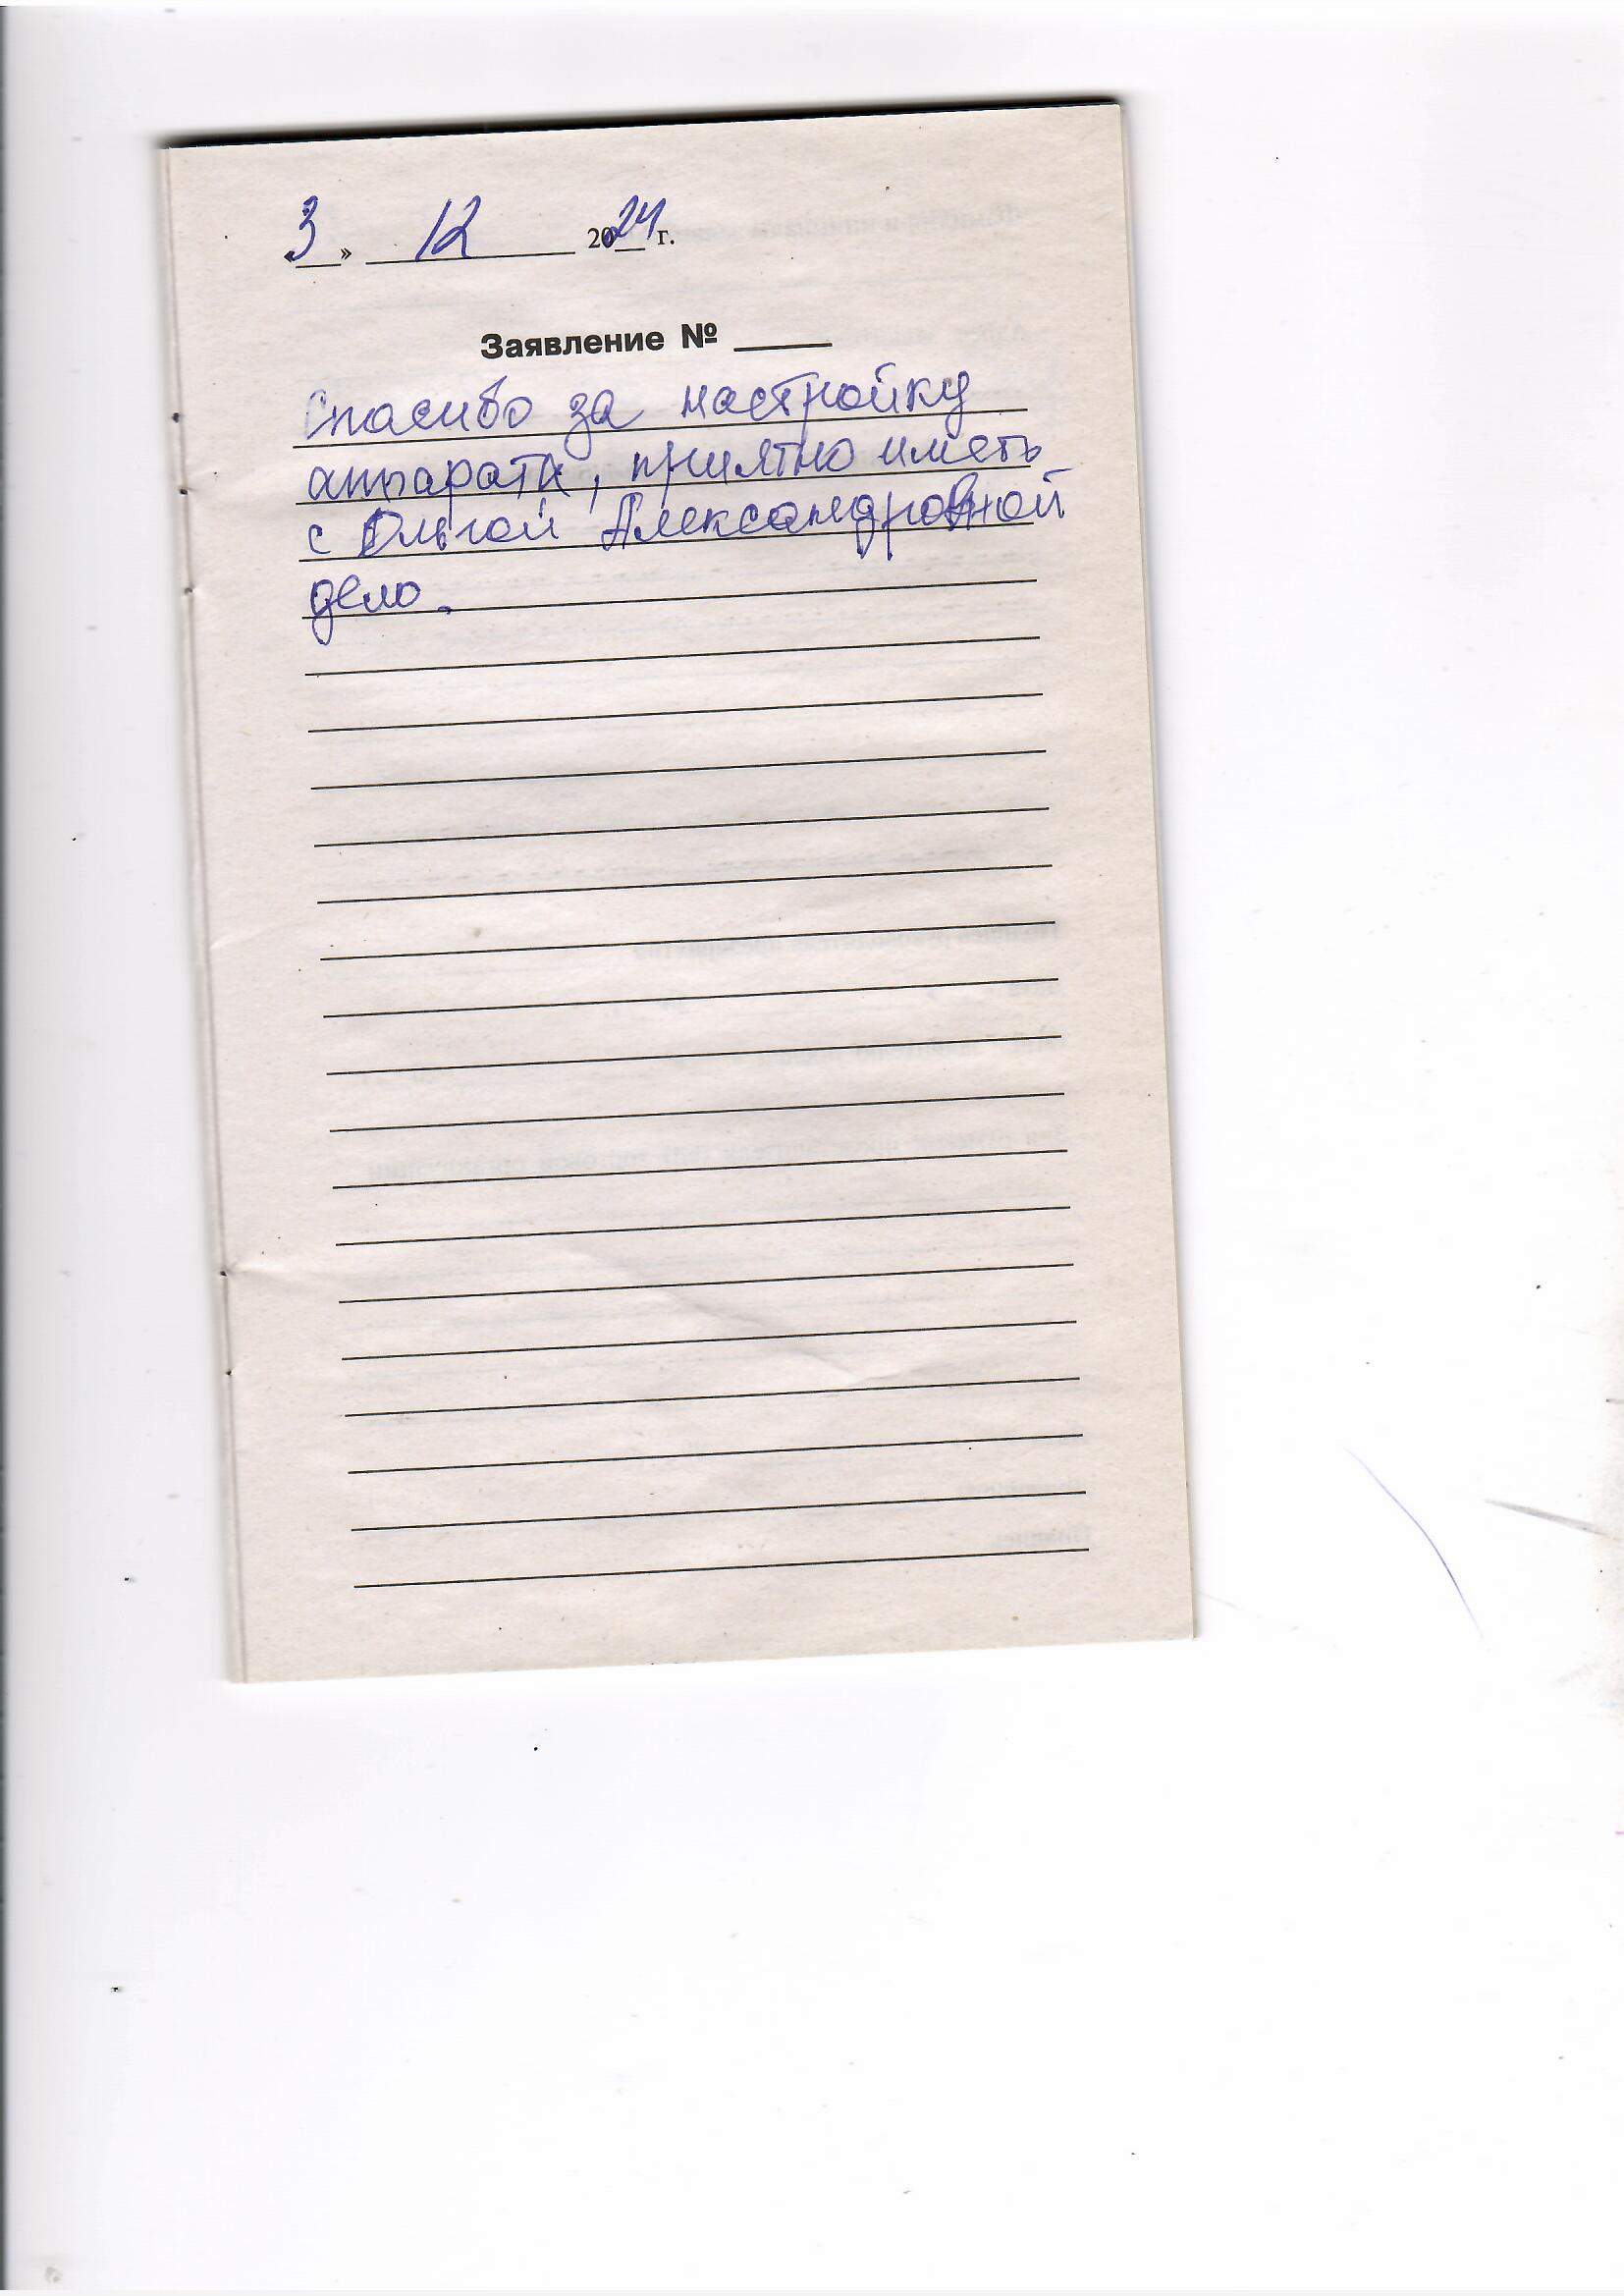 «3» 12 2024 г.
Заявление № ____
Спасибо за настройку
аппарата, приятно иметь
с Ольгой Александровной
дело.